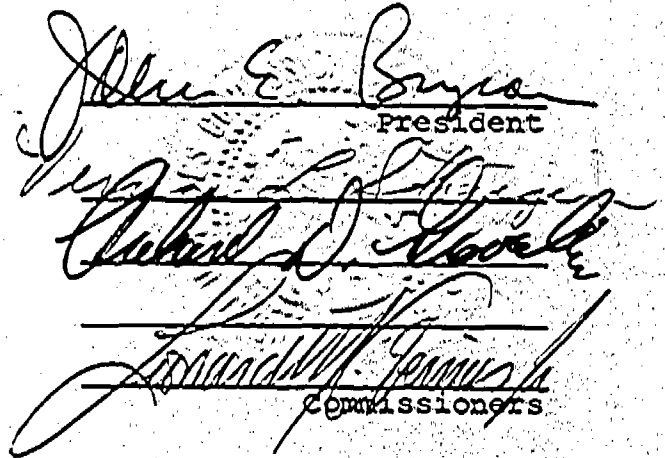 John E. Bryson
President
Richard D. Gravelle
Leonard M. Grimes Jr.
Commissioners